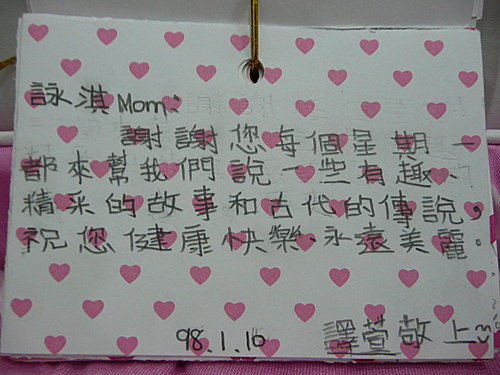 詠淇Mom:
謝謝您每個星期一
都來幫我們說一些有趣、
精采的故事和古代的傳說,
祝您健康快樂、永遠美麗。
98.1.10 譯萱敬上